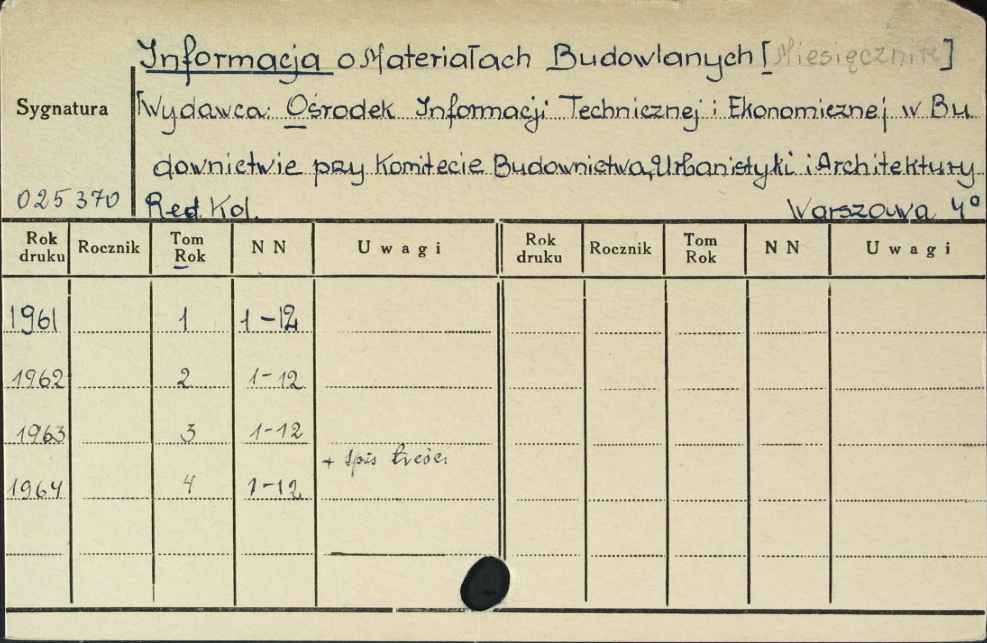 Informacja o Materiałach Budowlanych [Miesięcznik]
Sygnatura
[Wydawca: Ośrodek Informacji Technicznej i Ekonomicznej w Bu
downictwie przy Komitecie Budownictwa, Urbanistyki i Architektury
025370
Red. Kol. Warszawa 4°
Rok druku Rocznik Tom Rok N N Uwagi Rok druku Rocznik Tom Rok N N Uwagi
1961 1 1-12
1962 2 1-12
1963 3 1-12
+ spis treści
1964 4 1-12